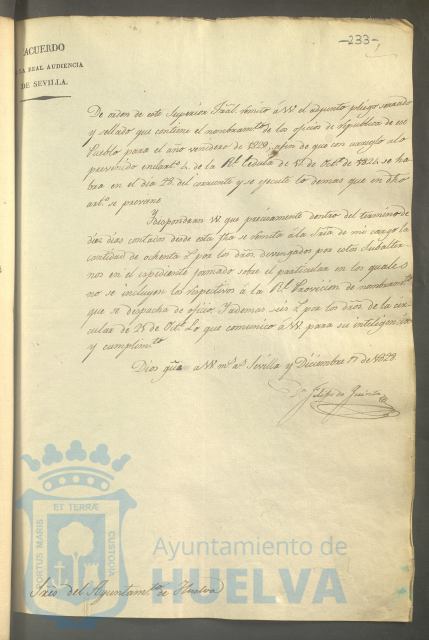 -233-
ACUERDO
LA REAL AUDIENCIA
DE SEVILLA.
De orden de este Superior Trâl. remito á VV. el adjunto pliego cerrado
y sellado que contiene el nombramto. de los oficios de república de ese
Pueblo para el año venidero de 1829, afin de que con arreglo alo
prevenido en el arto. 4. de la Rl. Cedula de 17. de Octe. de 1824 se ha
bra en el dia 23 del corriente y se egecute lo demas que en dho
arto. se previene
Responderan VV. que precisamente dentro del termino de
dies dias contados desde esta fha se remita ála Sria de mi cargo la
cantidad de ochenta por los dros. devengados por estos Subalter-
nos en el espediente formado sobre el particular en los quales
no se incluyen los respectivos á la Rl. Provicion de nombramto.
que se despacha de oficio, Y ademas seis por los dros. de la cir-
cular de 21 de Lo que comunico á VV. para su inteligencia
y cumplimto.
Dios gue. a VV. ms. as. Sevilla y Diciembre 17 de 1828
Sres. del Ayuntamto. de Huelva
ET TERRÆ
PORTUS MARIS
CUSTODIA
Ayuntamiento de
HUELVA